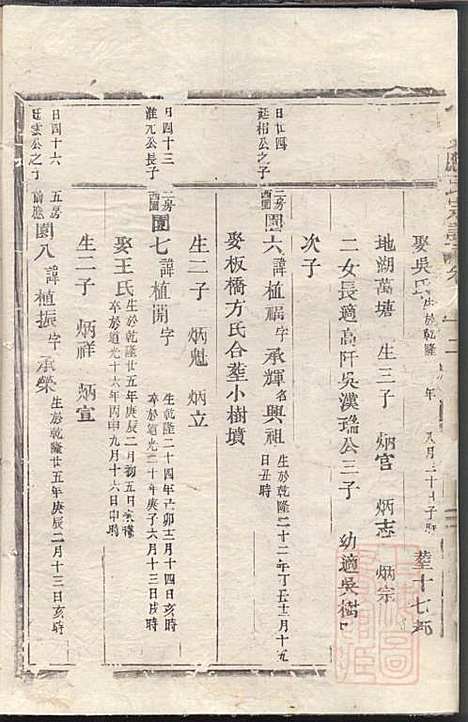 娶吳氏 生於乾隆 年 八月二十日子時 葬十七都
地湖萬塘 生三子 炳官 炳志 炳宗
二女長適高阡吳漢瑞公三子 幼適吳
次子
日廿四
廷相公之子
二房
西園 園六 諱植福 字承輝 名興祖 生於乾隆二十二年丁丑十二月十五
日丑時
娶板橋方氏合葬小樹墳
生二子 炳魁 炳立
日四十三
淮元公長子
二房
西園 園七 諱植開 字 生乾隆二十四年己卯十二月十四日亥時
卒於道光二十年庚子六月十三日戌時
娶王氏 生於乾隆廿五年庚辰二月初五日亥時
卒於道光十六年丙申九月十六日申時
生二子 炳祥 炳宣
日四十六
廷雲公之子
五房
前應 園八 諱植振 字承榮 生於乾隆廿五年庚辰二月十三日亥時